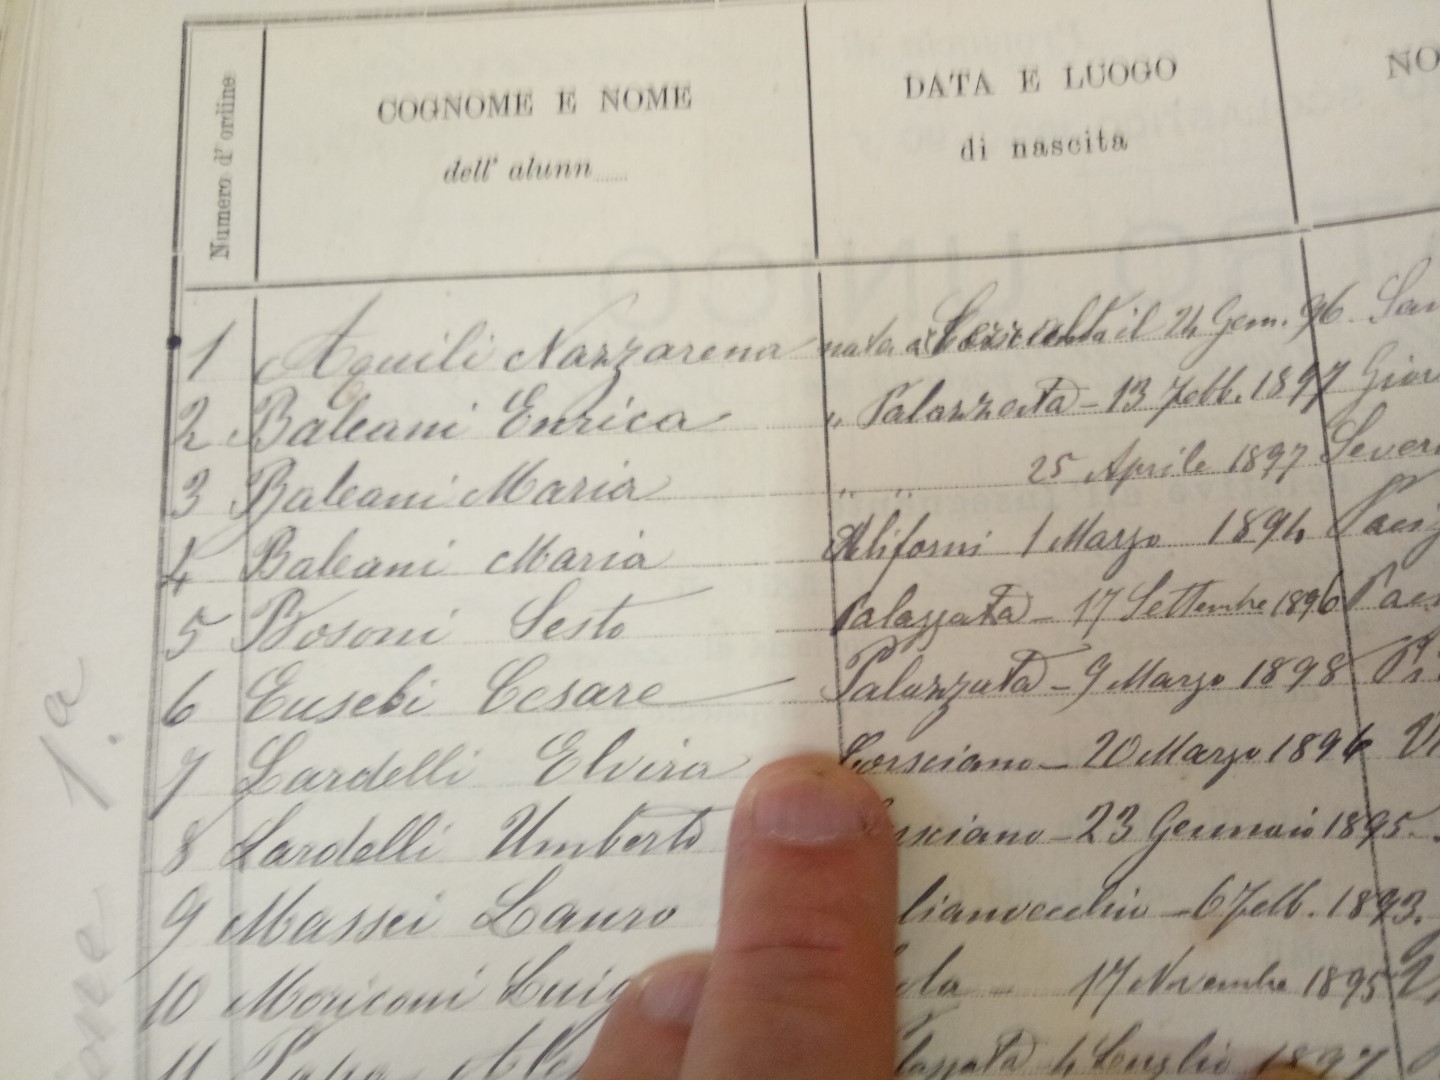 Numero d'ordine
COGNOME E NOME
dell' alunn......
DATA E LUOGO
di nascita
NO
1 Aquili Nazzarena nata a il 24 Gem. 96
2 Baleani Enrica " Palazzata - 13 Febb. 1897
3 Baleani Maria " " 25 Aprile 1897 Sever
4 Baleani Maria Aliforni 1 Marzo 1894
5 Bosoni Sesto Palazzata - 17 Settembre 1896
6 Eusebi Cesare Palazzata - 9 Marzo 1898
7 Lardelli Elvira Corsciano - 20 Marzo 1896
8 Lardelli Umberto sciano - 23 Gennaio 1895
9 Massei Lauro lianovecchio - 6 Febb. 1893.
10 Moriconi Luig ola - 17 Novembre 1895
11 Papa Ale lazzata 4 Luglio 1897
1ª